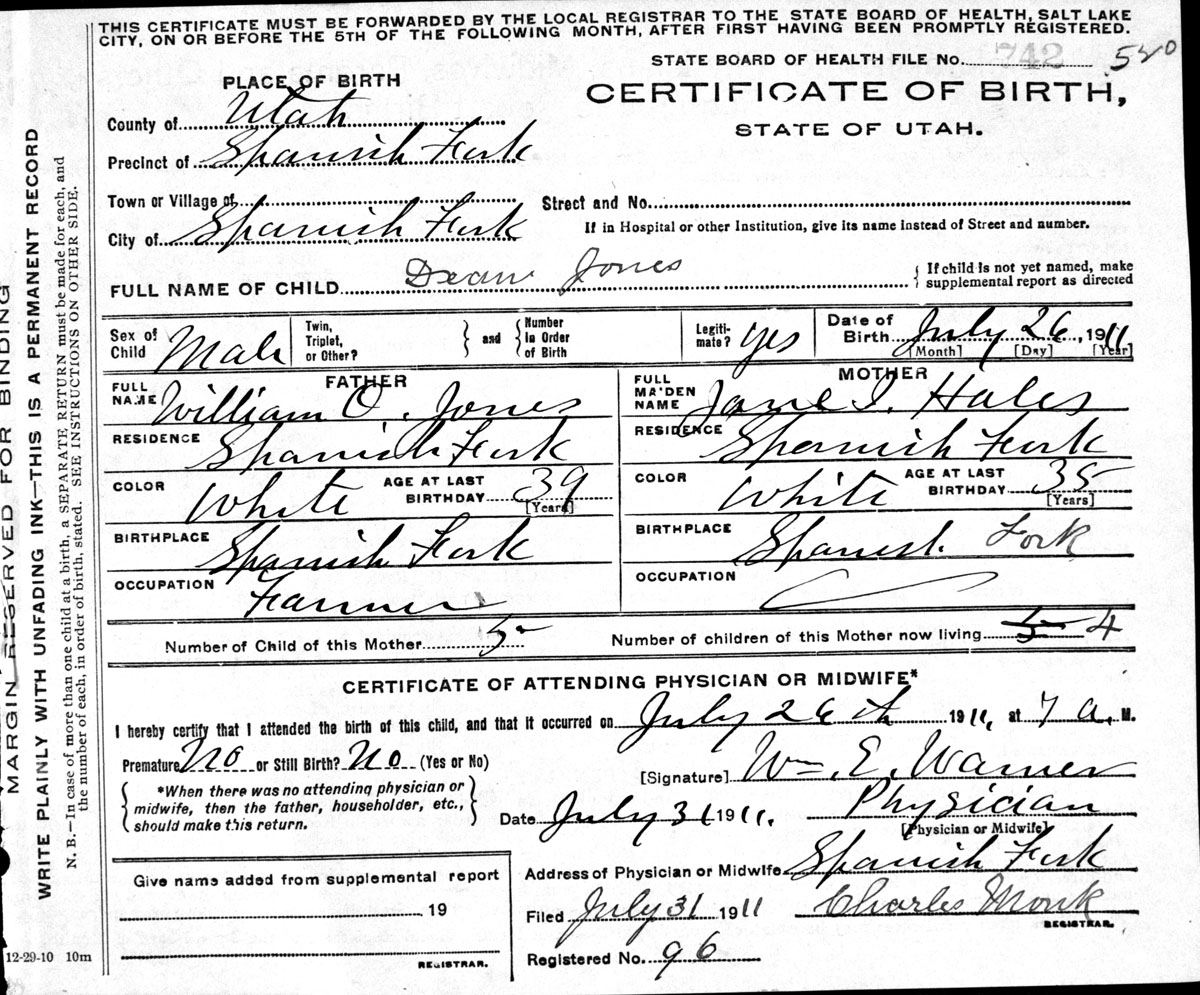 THIS CERTIFICATE MUST BE FORWARDED BY THE LOCAL REGISTRAR TO THE STATE BOARD OF HEALTH, SALT LAKE
CITY, ON OR BEFORE THE 5TH OF THE FOLLOWING MONTH, AFTER FIRST HAVING BEEN PROMPTLY REGISTERED.
STATE BOARD OF HEALTH FILE No. 742 520
PLACE OF BIRTH
CERTIFICATE OF BIRTH,
STATE OF UTAH.
County of Utah
Precinct of Spanish Fork
Town or Village of Street and No.
City of Spanish Fork If in Hospital or other Institution, give its name instead of Street and number.
FULL NAME OF CHILD Dean Jones { If child is not yet named, make supplemental report as directed
Sex of Child Male Twin, Triplet, or Other? } and { Number in Order of Birth Legiti-mate? yes Date of Birth July 26, 1911
[Month] [Day] [Year]
FATHER MOTHER
FULL NAME William O. Jones FULL MAIDEN NAME Jane I. Hales
RESIDENCE Spanish Fork RESIDENCE Spanish Fork
COLOR White AGE AT LAST BIRTHDAY 39 [Years] COLOR White AGE AT LAST BIRTHDAY 35 [Years]
BIRTHPLACE Spanish Fork BIRTHPLACE Spanish Fork
OCCUPATION Farmer OCCUPATION
Number of Child of this Mother 5 Number of children of this Mother now living 5 4
CERTIFICATE OF ATTENDING PHYSICIAN OR MIDWIFE*
I hereby certify that I attended the birth of this child, and that it occurred on July 26th 1911, at 7 a. M.
Premature No or Still Birth? No (Yes or No)
[Signature] Wm. E. Warner
{ *When there was no attending physician or
midwife, then the father, householder, etc.,
should make this return. }
Date July 31 1911. Physician
[Physician or Midwife]
Address of Physician or Midwife Spanish Fork
Give name added from supplemental report
19
REGISTRAR.
Filed July 31 1911 Charles Monk
REGISTRAR.
Registered No. 96
12-29-10 10m
MARGIN RESERVED FOR BINDING
WRITE PLAINLY WITH UNFADING INK—THIS IS A PERMANENT RECORD
N. B.—In case of more than one child at a birth, a SEPARATE RETURN must be made for each, and
the number of each, in order of birth, stated. SEE INSTRUCTIONS ON OTHER SIDE.